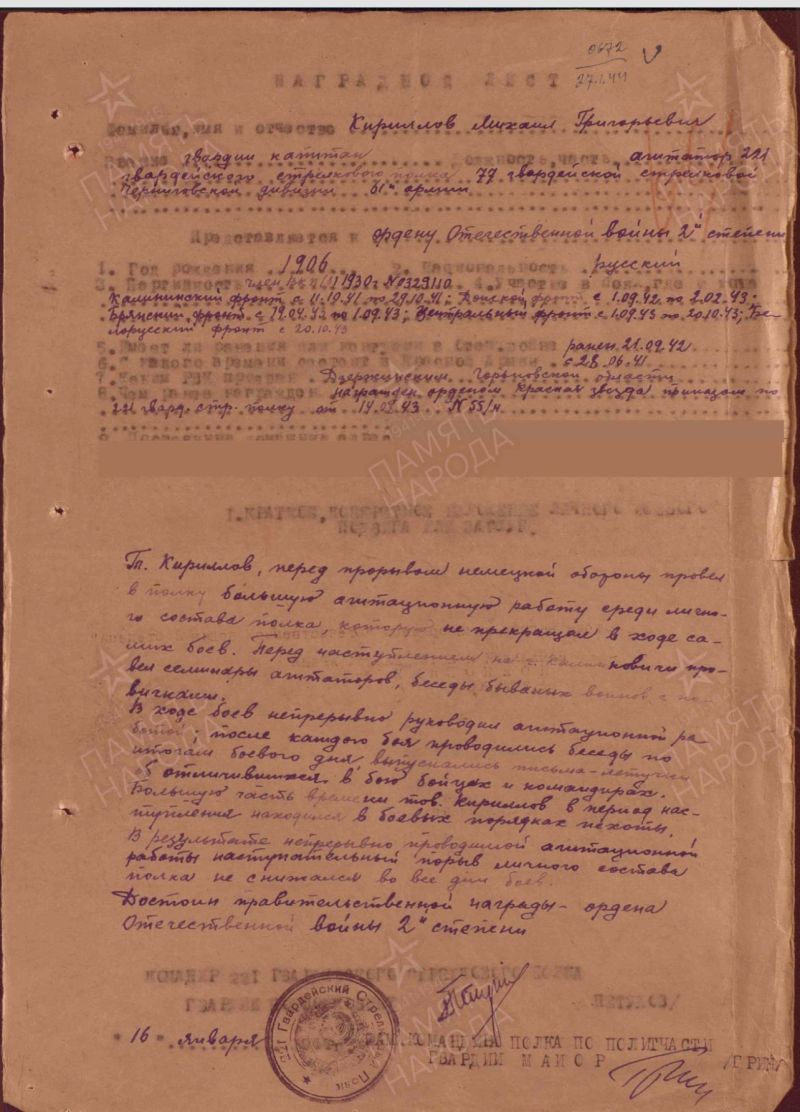 0672
27.1.44
НАГРАДНОЙ ЛИСТ
Фамилия, имя и отчество Кириллов Михаил Григорьевич
Звание гвардии капитан Должность, часть агитатор 221
гвардейского стрелкового полка 77 гвардейской стрелковой
Черниговской дивизии 61й армии
Представляется к ордену Отечественной войны 2й степени
1. Год рождения 1906 2. Национальность русский
3. Партийность член ВКП(б) 1930г № 4. Участие в
Калининский фронт с 11.10.41 по 29.10.41; Донской фронт с 1.09.42 по 2.02.43;
Брянский фронт с по 1.09.43; Центральный фронт с 1.09.43 по 20.10.43; Бе-
лорусский фронт с 20.10.43
5. Имеет ли ранения или контузии в Отеч. войне ранен 21.09.42
6. С какого времени состоит в Красной Армии с 28.06.41
7. Каким РВК призван Дзержинским Горьковской области
8. Чем ранее награжден награжден орденом Красная звезда приказом по
221 гвард. стр. полку от № 55/н
9. Постоянный домашний адрес
I. КРАТКОЕ, КОНКРЕТНОЕ ИЗЛОЖЕНИЕ ЛИЧНОГО БОЕВОГО
ПОДВИГА ИЛИ ЗАСЛУГ.
Т. Кириллов, перед прорывом немецкой обороны провел
в полку большую агитационную работу среди лично-
го состава полка, которую не прекращал в ходе са-
мих боев. Перед наступлением на г. Калинковичи про-
вел семинары агитаторов, беседы бывалых воинов с но-
вичками.
В ходе боев непрерывно руководил агитационной ра-
ботой; после каждого боя проводились беседы по
итогам боевого дня, выпускались письма-летучки
об отличившихся в бою бойцах и командирах.
Большую часть времени тов. Кириллов в период нас-
тупления находился в боевых порядках пехоты.
В результате непрерывно проводимой агитационной
работы наступательный порыв личного состава
полка не снижался во все дни боев.
Достоин правительственной награды - ордена
Отечественной войны 2й степени
КОМАНДИР 221 ГВАРДЕЙСКОГО СТРЕЛКОВОГО ПОЛКА
ГВАРДИИ /ПЕТУХОВ/
"16" января
221 Гвардейский Стрелковый Полк
ЗАМ. КОМАНДИРА ПОЛКА ПО ПОЛИТЧАСТИ
ГВАРДИИ МАЙОР /ГРИН/
ПАМЯТЬ НАРОДА